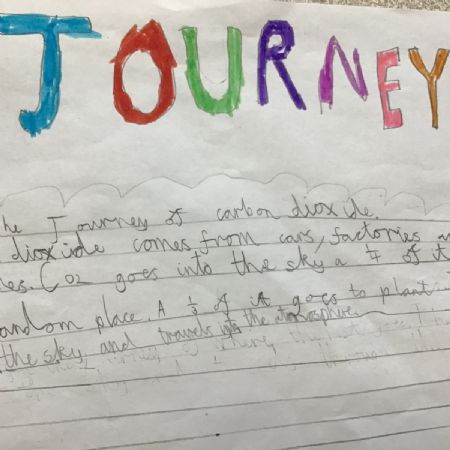 JOURNEY
he Journey of carbon dioxide.
dioxide comes from cars, factories a
es. Co2 goes into the sky a 1/4 of it
andom place. A 1/3 of it goes to plant
the sky and travels into the atmosphere.